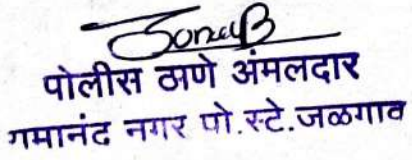 पोलीस ठाणे अंमलदार
गमानंद नगर पो.स्टे.जळगाव